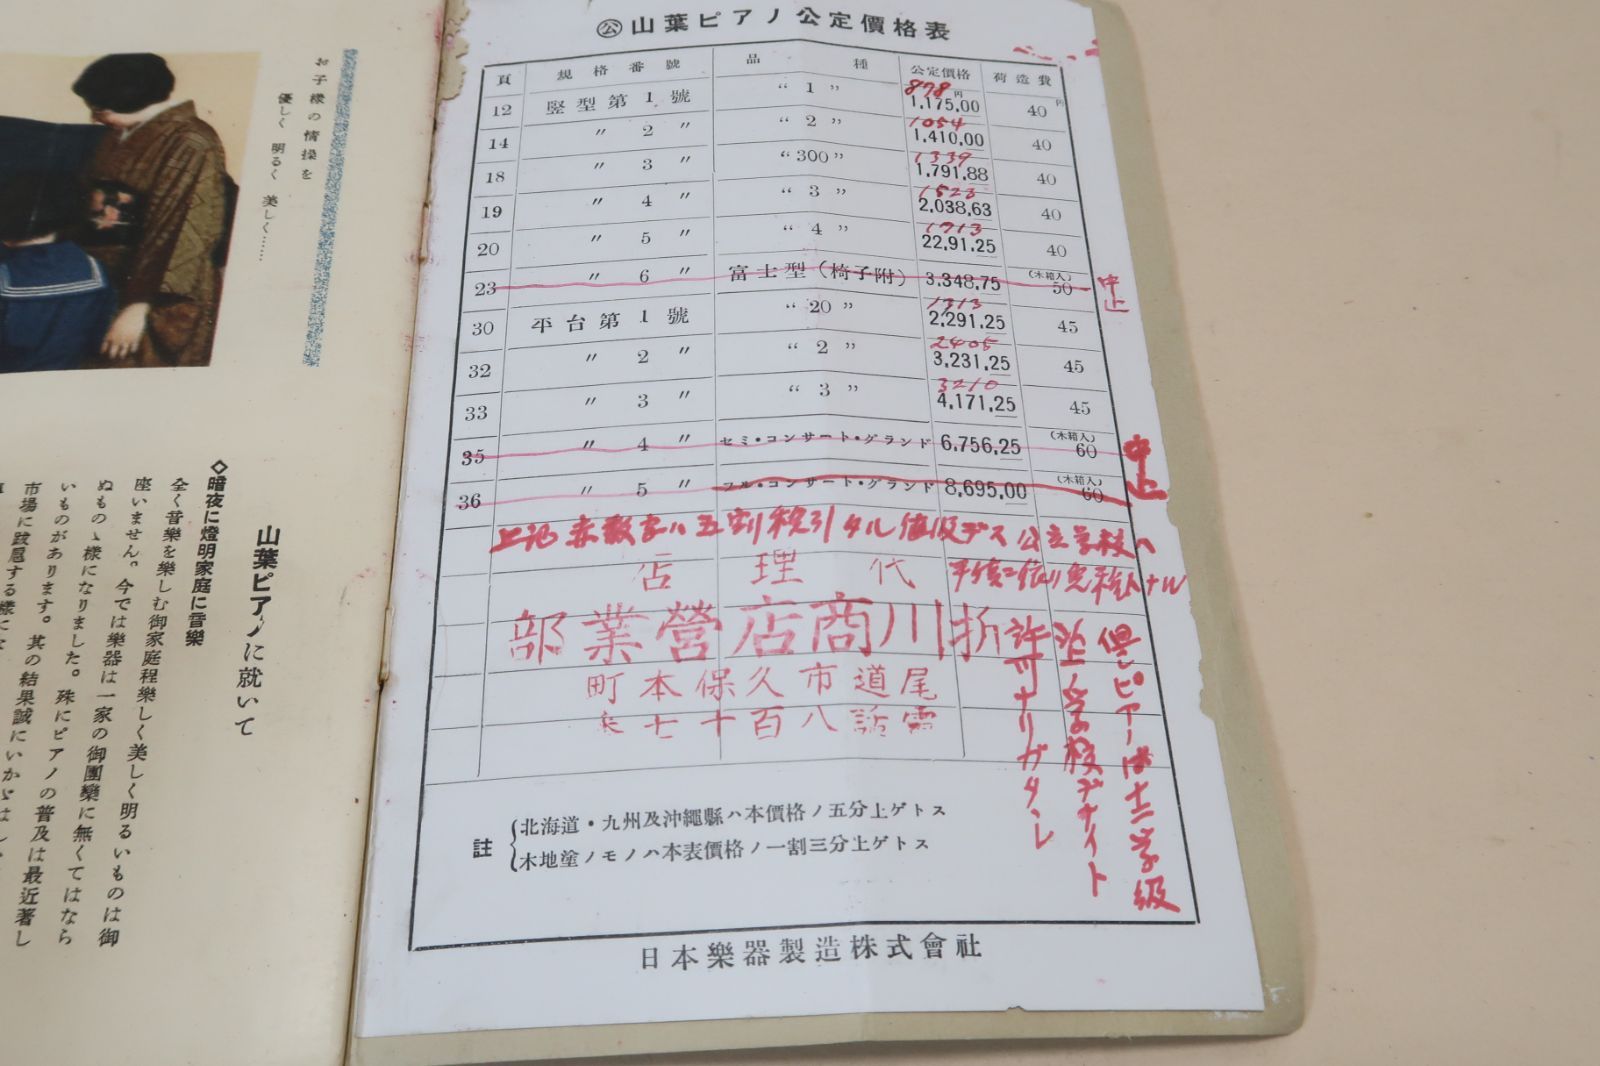 お子樣の情操を
優しく 明るく 美しく……
山葉ピアノに就いて
◇暗夜に燈明家庭に音樂
全く音樂を樂しむ御家庭程樂しく美しく明るいものは御
座いません。今では樂器は一家の御團欒に無くてはなら
ぬものゝ樣になりました。殊にピアノの普及は最近著し
いものがあります。其の結果誠にいかゞはし
市場に跋扈する樣に
㊢山葉ピアノ公定價格表
頁 規格番號 品種 公定價格 荷造費
12 竪型第1號 “1” 878 円 1,175.00 40円
14 〃 2 〃 “2” 1054 1,410.00 40
18 〃 3 〃 “300” 1339 1,791.88 40
19 〃 4 〃 “3” 1523 2,038,63 40
20 〃 5 〃 “4” 1713 22,91.25 40
23 〃 6 〃 富士型(椅子附) 3,348.75 (木箱入) 50 中止
30 平台第1號 “20” 1713 2,291.25 45
32 〃 2 〃 “2” 2405 3,231,25 45
33 〃 3 〃 “3” 3210 4,171,25 45
35 〃 4 〃 セミ・コンサート・グランド 6,756,25 (木箱入) 60 中止
36 〃 5 〃 フル・コンサート・グランド 8,695,00 (木箱入) 60
上記赤数字ハ五割税引タル値段デス公立学校ハ
手續ニ依リ免税トナル
但シピアノーは十二学級
以上ノ学校デナイト
許可ナリガタシ
代理店
折川商店營業部
尾道市久保本町
電話八百十七
註
北海道・九州及沖繩縣ハ本價格ノ五分上ゲトス
木地塗ノモノハ本表價格ノ一割三分上ゲトス
日本樂器製造株式會社